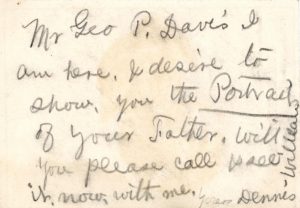 Mr Geo P. Davis I
am here, & desire to
show, you the Portrait
of your Father. Will
you please call & see
it, now, with me. Yours Dennis